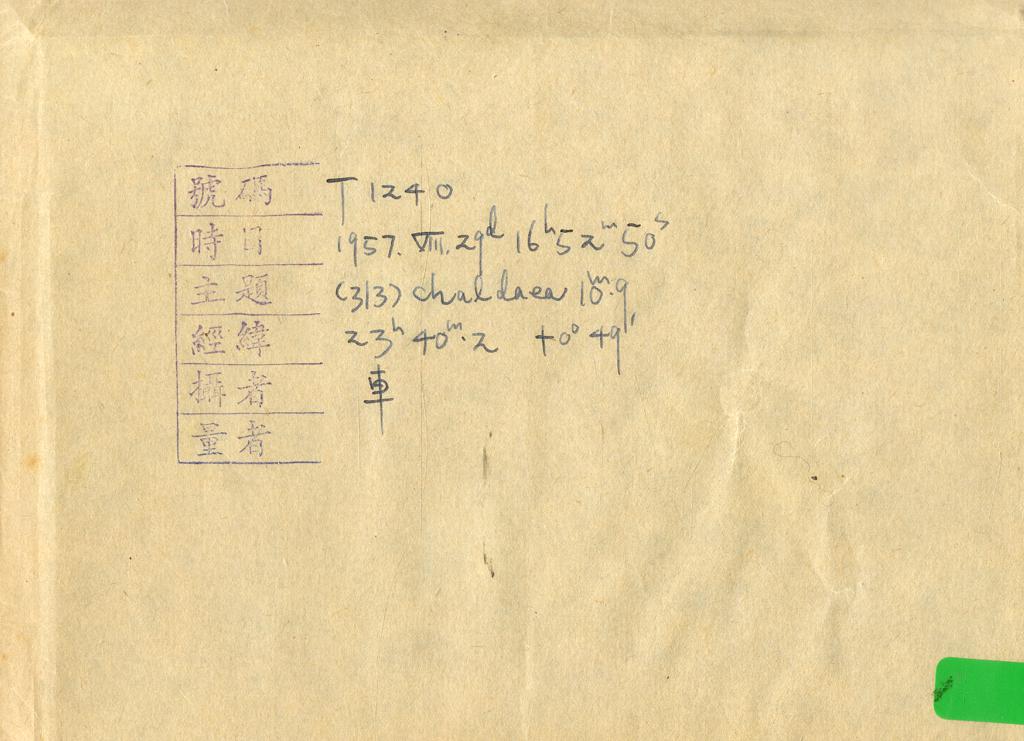 號碼 T1240
時日 1957.VIII.29ᵈ 16ʰ52ᵐ50ˢ
主題 (313) Chaldaea 10ᵐ.9
經緯 23ʰ 40ᵐ.2 +0° 49'
攝者 車
量者